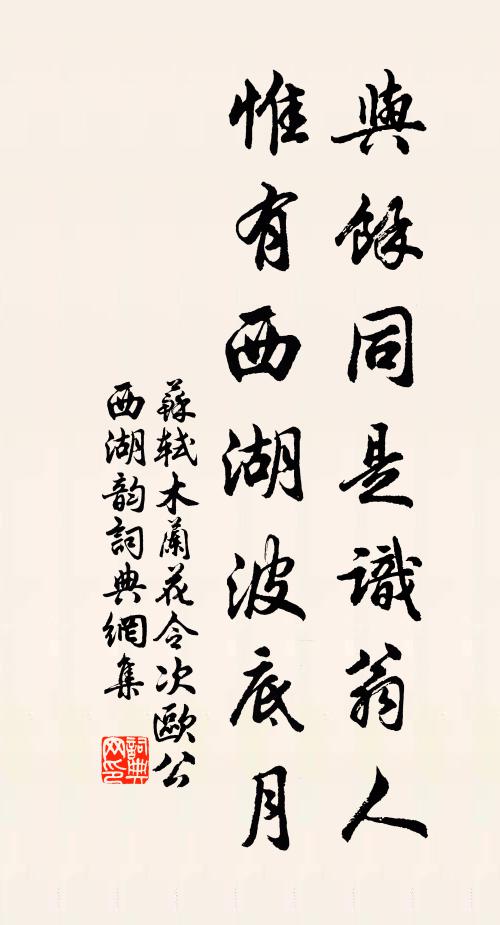 與餘同是識翁人
惟有西湖波底月
蘇軾木蘭花令次歐公
西湖韵詞典網集
詞典
网印